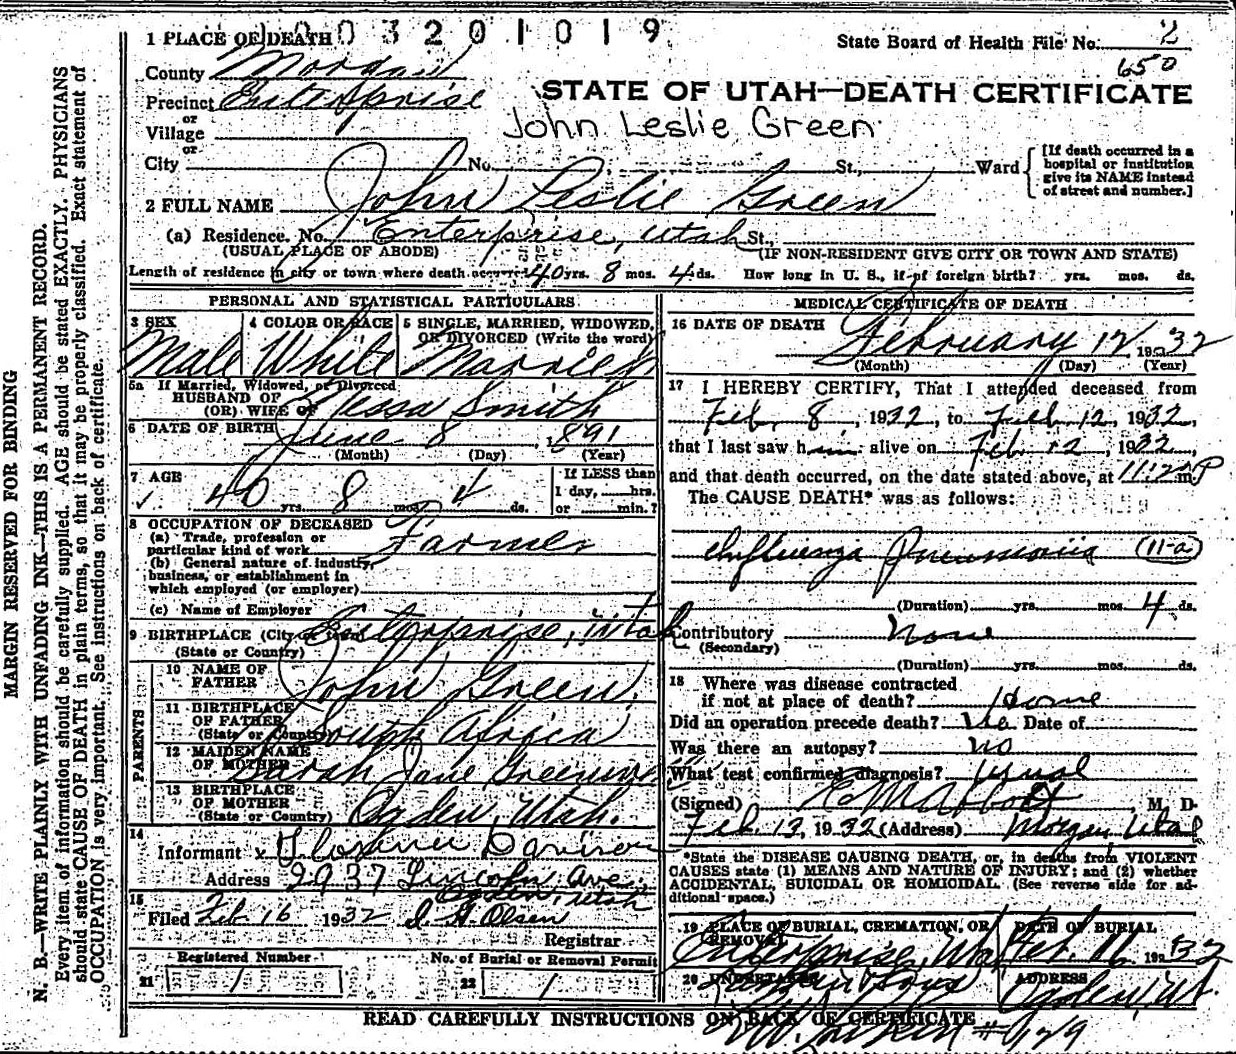 1 PLACE OF DEATH 0 3 2 0 1 0 1 9
State Board of Health File No. 2
650
County Morgan
Precinct Enterprise
STATE OF UTAH—DEATH CERTIFICATE
or
Village
John Leslie Green
or
City No. St., Ward
[If death occurred in a
hospital or institution
give its NAME instead
of street and number.]
2 FULL NAME John Leslie Green
(a) Residence. No. Enterprise, Utah St.,
(USUAL PLACE OF ABODE) (IF NON-RESIDENT GIVE CITY OR TOWN AND STATE)
Length of residence in city or town where death 40 yrs. 8 mos. 4 ds. How long in U. S., if of foreign birth? yrs. mos. ds.
PERSONAL AND STATISTICAL PARTICULARS
3 SEX
Male
4 COLOR OR RACE
White
5 SINGLE, MARRIED, WIDOWED,
OR DIVORCED (Write the word)
Married
5a If Married, Widowed, or Divorced
HUSBAND OF
(OR) WIFE OF Smith
6 DATE OF BIRTH June 8, 1891
(Month) (Day) (Year)
7 AGE
40 yrs. 8 mos. 4 ds.
If LESS than
1 day, hrs.
or min.?
8 OCCUPATION OF DECEASED
(a) Trade, profession or
particular kind of work Farmer
(b) General nature of industry,
business, or establishment in
which employed (or employer)
(c) Name of Employer
9 BIRTHPLACE (City or town) Enterprise, Utah
(State or Country)
PARENTS
10 NAME OF
FATHER John Green
11 BIRTHPLACE
OF FATHER
(State or Country) South Africa
12 MAIDEN NAME
OF MOTHER Sarah Jane
13 BIRTHPLACE
OF MOTHER
(State or Country) Ogden, Utah.
14
Informant
Address 2937 Lincoln Ave.
Ogden, Utah
15
Filed Feb 16 1932 Olsen
Registrar
Registered Number
21 1
No. of Burial or Removal Permit
22 1
MEDICAL CERTIFICATE OF DEATH
16 DATE OF DEATH
February 12, 1932
(Month) (Day) (Year)
17 I HEREBY CERTIFY, That I attended deceased from
Feb. 8, 1932, to Feb. 12, 1932,
that I last saw him alive on Feb. 12, 1932,
and that death occurred, on the date stated above, at P m.
The CAUSE DEATH* was as follows:
Influenza Pneumonia (11-a)
(Duration) yrs. mos. 4 ds.
Contributory None
(Secondary)
(Duration) yrs. mos. ds.
18 Where was disease contracted
if not at place of death? Home
Did an operation precede death? No Date of
Was there an autopsy? no
What test confirmed diagnosis? usual
(Signed) Abbott, M. D.
Feb. 13, 1932 (Address) Morgan, Utah
*State the DISEASE CAUSING DEATH, or, in deaths from VIOLENT
CAUSES state (1) MEANS AND NATURE OF INJURY; and (2) whether
ACCIDENTAL, SUICIDAL OR HOMICIDAL. (See reverse side for ad-
ditional space.)
19 PLACE OF BURIAL, CREMATION, OR
REMOVAL
Enterprise,
DATE OF BURIAL
Feb. 16, 1932
20 UNDERTAKER
Sons
ADDRESS
Ogden, Ut.
READ CAREFULLY INSTRUCTIONS ON BACK OF CERTIFICATE
MARGIN RESERVED FOR BINDING
N. B.—WRITE PLAINLY WITH UNFADING INK—THIS IS A PERMANENT RECORD.
Every item of information should be carefully supplied. AGE should be stated EXACTLY. PHYSICIANS
should state CAUSE OF DEATH in plain terms, so that it may be properly classified. Exact statement of
OCCUPATION is very important. See instructions on back of certificate.